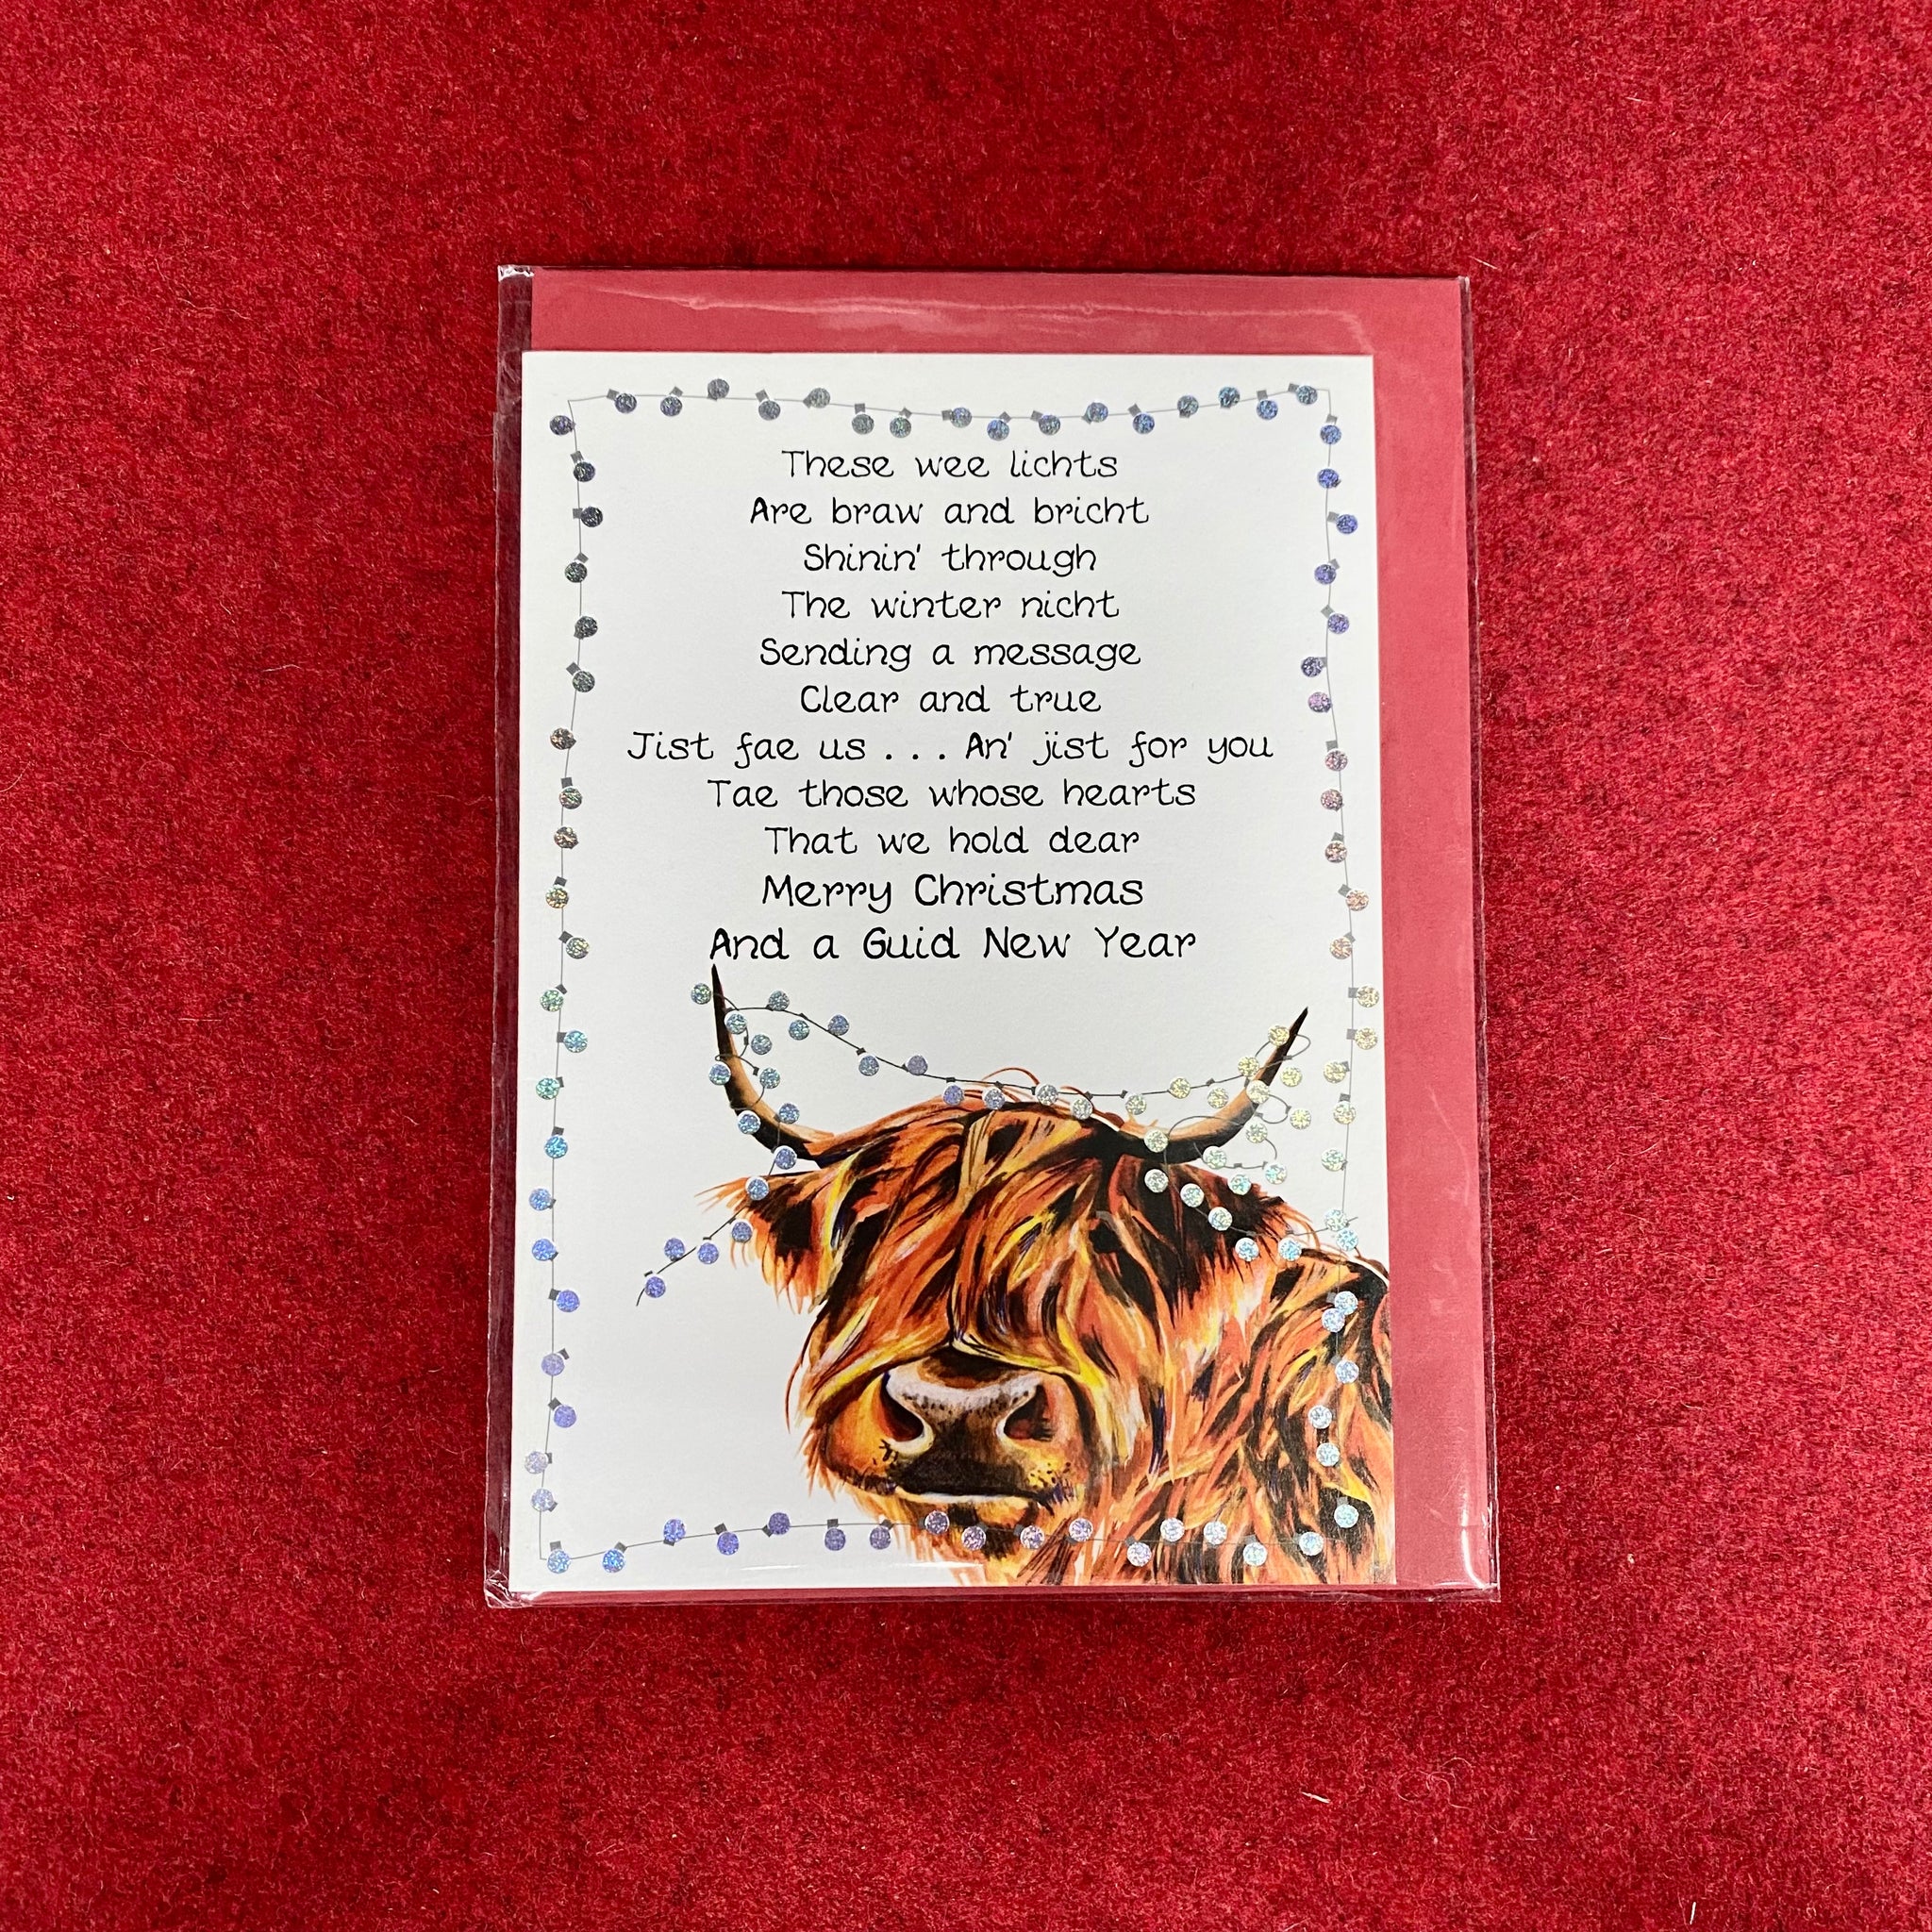 These wee lichts
Are braw and bricht
Shinin' through
The winter nicht
Sending a message
Clear and true
Jist fae us . . . An' jist for you
Tae those whose hearts
That we hold dear
Merry Christmas
And a Guid New Year